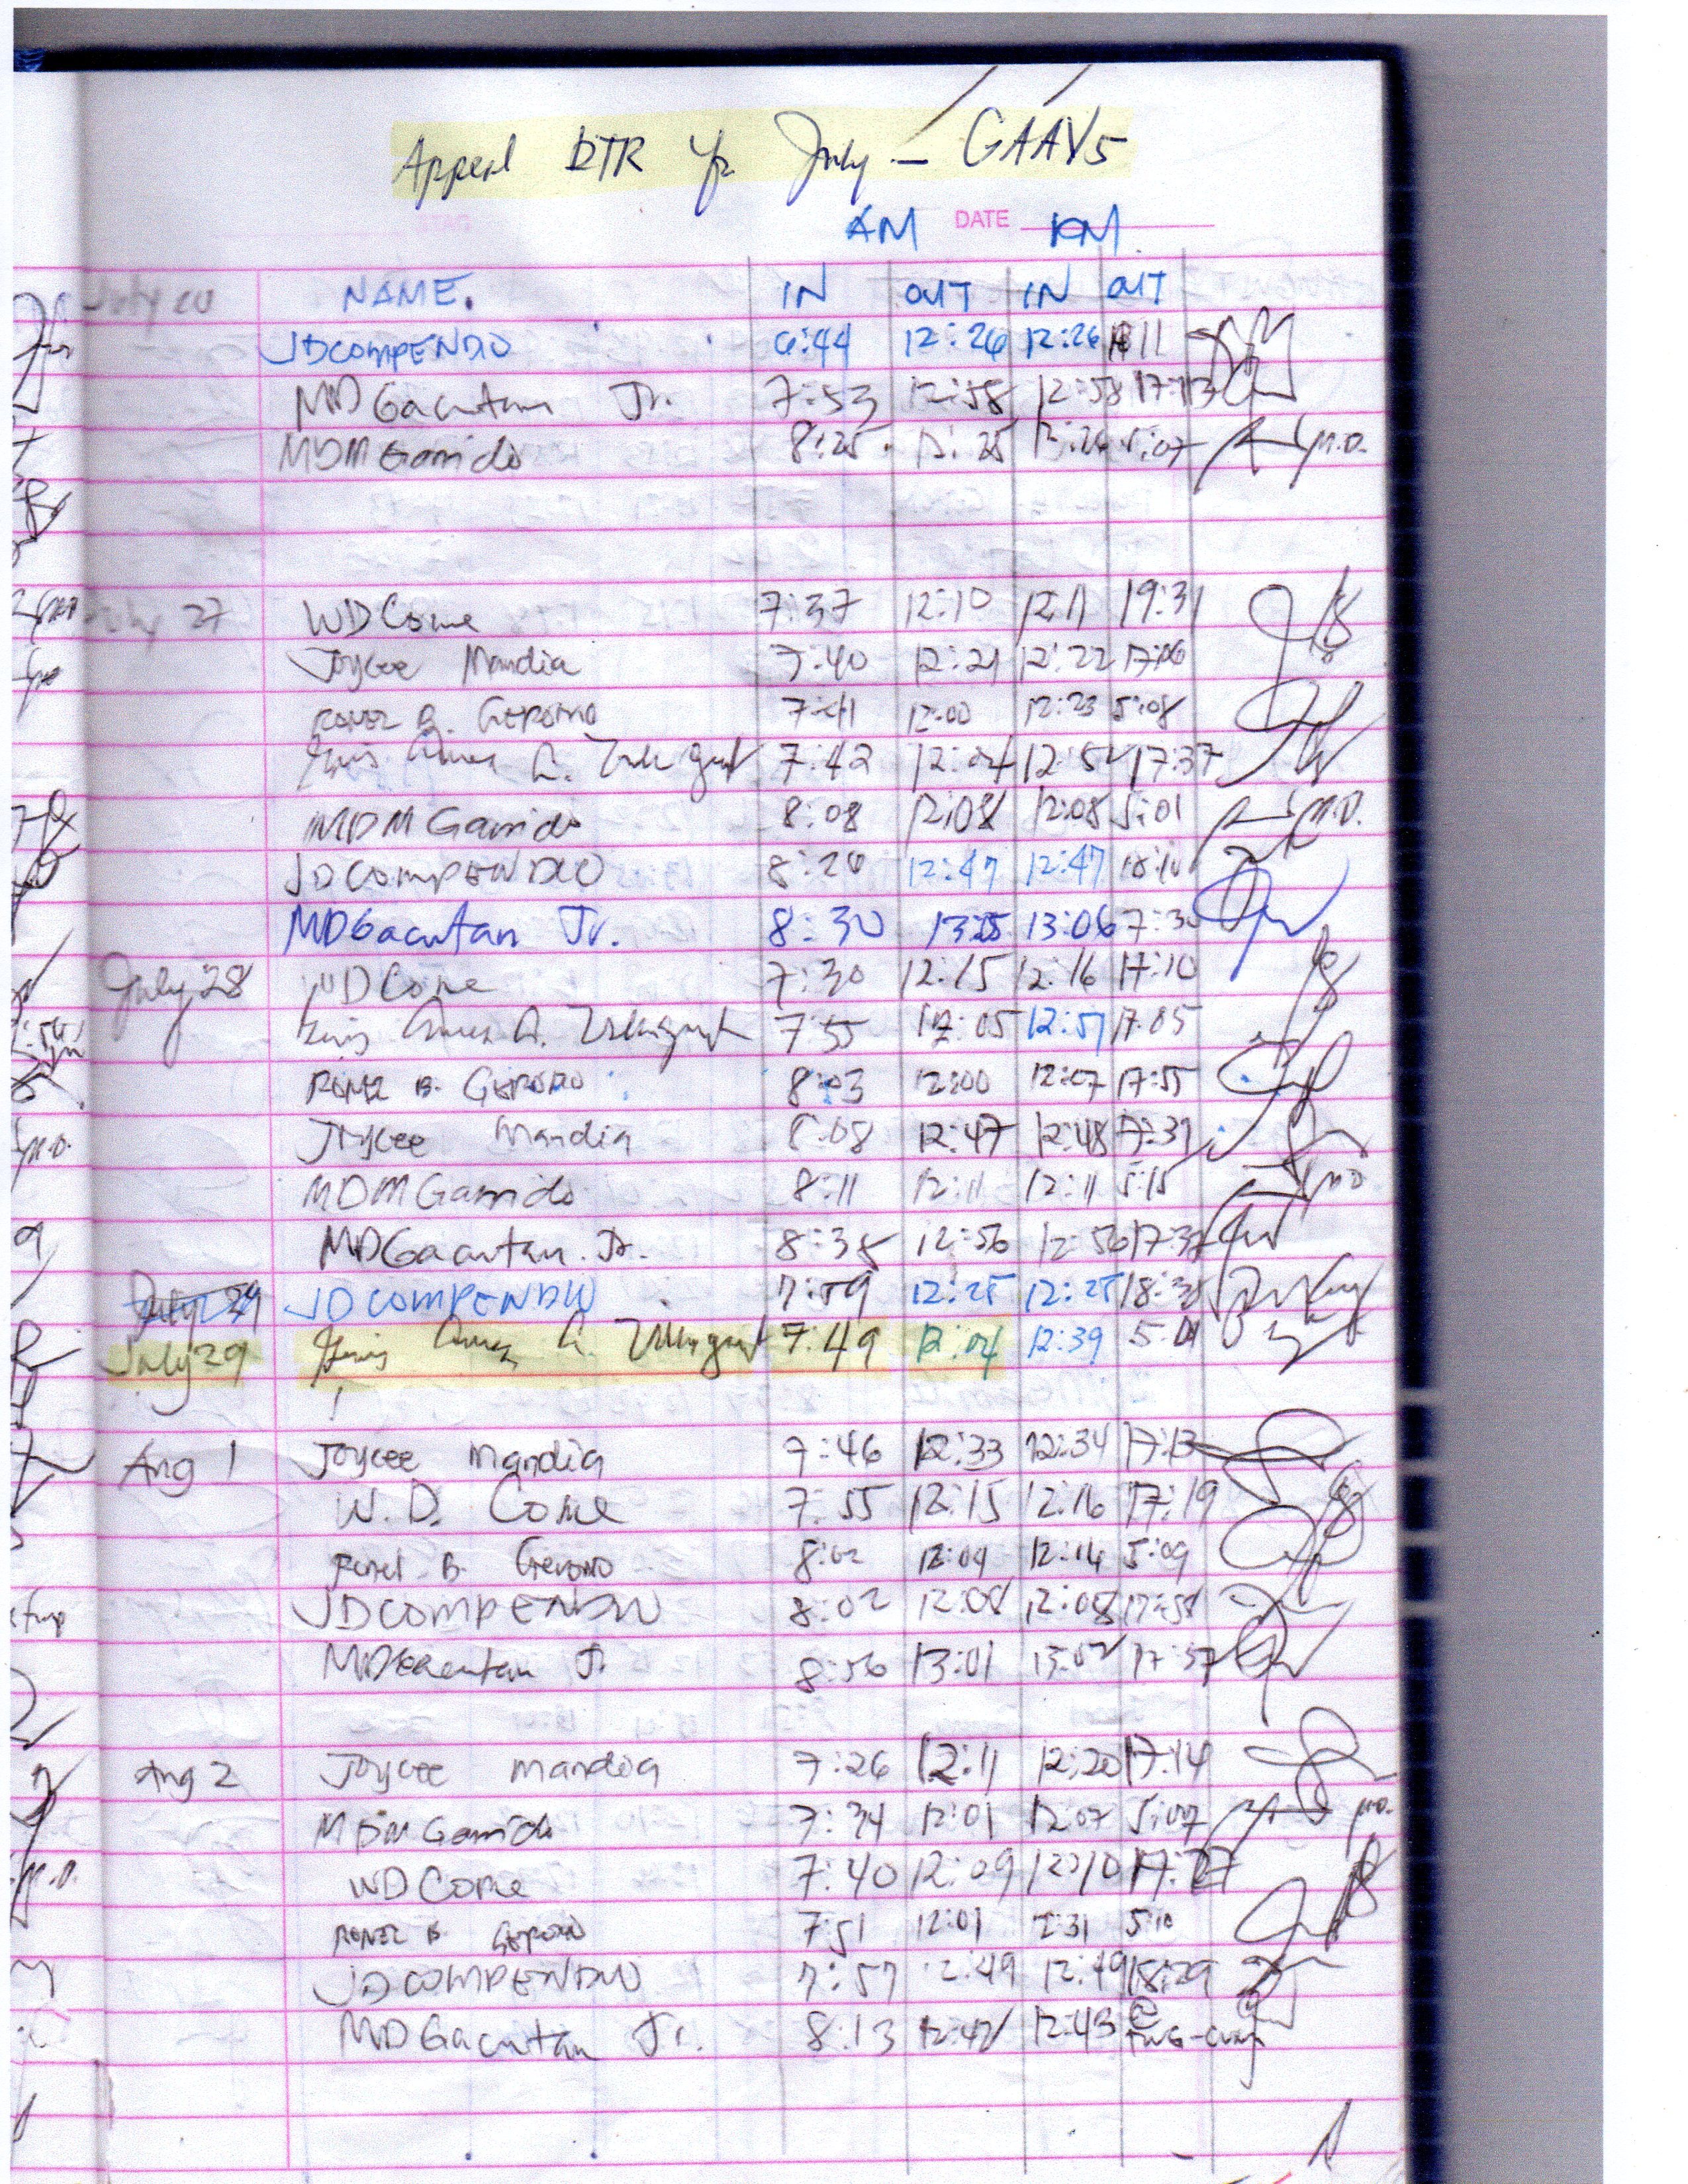 Appeal DTR for July - GAAV5
STAG
AM DATE PM
July NAME. IN OUT IN OUT
JDCOMPENDIO 6:44 12:26 12:26 11
MDGacutan Jr. 7:53 12:58 12:58 17:13
MDMGarrido 8:25 12:25 12:26 5:07 M.D.
July 27 WDCome 7:37 12:10 12:11 19:31
Joycee Mandia 7:40 12:21 12:22 17:06
RONEL B. GERONO 7:41 12:00 12:23 5:08
7:42 12:04 12:52 17:37
MDMGarrido 8:08 12:08 12:08 5:01 M.D.
JDCOMPENDIO 8:20 12:47 12:47 18:10
MDGacutan Jr. 8:30 13:05 13:06 7:30
July 28 WDCome 7:30 12:15 12:16 17:10
7:55 12:05 12:51 17:05
RONEL B. GERONO 8:03 12:00 12:07 17:55
Joycee Mandia 8:08 12:47 12:48 17:31
MDMGarrido 8:11 12:11 12:11 5:15
MDGacutan Jr. 8:38 12:56 12:56 17:37
July 29 JDCOMPENDIO 7:59 12:25 12:25 18:30
July 29 7:49 12:04 12:39 5:01
Aug 1 Joycee Mandia 7:46 12:33 12:34 17:13
W.D. Come 7:55 12:15 12:16 17:19
Ronel B. Gerono 8:02 12:09 12:14 5:09
JDCOMPENDIO 8:02 12:08 12:08 17:58
MDGacutan Jr. 8:56 13:01 13:02 17:57
Aug 2 Joycee Mandia 7:26 12:11 12:20 17:14
MDMGarrido 7:34 12:01 12:07 5:07 M.D.
WDCome 7:40 12:09 12:10 17:27
RONEL B. GERONO 7:51 12:01 12:31 5:10
JDCOMPENDIO 7:57 12:49 12:49 18:29
MDGacutan Jr. 8:13 12:42 12:43